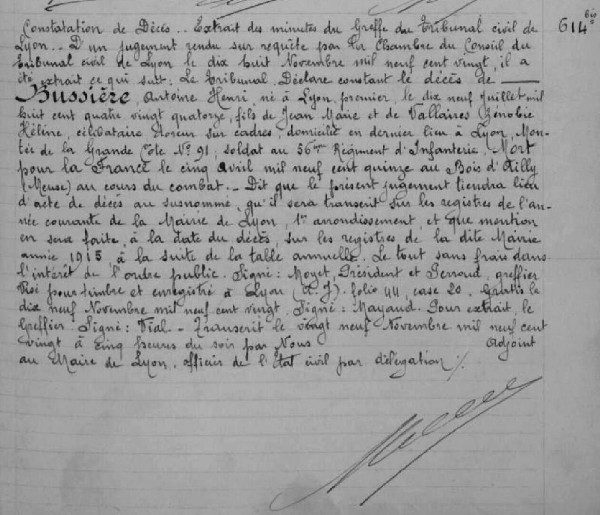 614 bis
Constatation de Décès.. Extrait des minutes du Greffe du Tribunal civil de
Lyon.. D'un jugement rendu sur requête par la Chambre du Conseil du
Tribunal civil de Lyon le dix huit Novembre mil neuf cent vingt, il a
été extrait ce qui suit: Le Tribunal, Déclare constant le décès de
Bussière, Antoine Henri, né à Lyon, premier, le dix neuf Juillet mil
huit cent quatre vingt quatorze, fils de Jean Marie et de Vallaires Génobie
Hélène, célibataire doreur sur cadres, domicilié en dernier lieu à Lyon, Mon-
tée de la Grande Côte N° 91; soldat au 56ème Régiment d'Infanterie, Mort
pour la France le cinq Avril mil neuf cent quinze au Bois d'Ailly
(Meuse) au cours du combat.- Dit que le présent jugement tiendra lieu
d'acte de décès au susnommé, qu'il sera transcrit sur les registres de l'an-
née courante de la Mairie de Lyon, 1er arrondissement, et que mention
en sera faite, à la date du décès, sur les registres de la dite Mairie
année 1915 à la suite de la table annuelle. Le tout sans frais dans
l'intérêt de l'ordre public. Signé: Moyet, Président et Perroud, greffier
Visé pour timbre et enregistré à Lyon (A. J). folio 44, case 20. Gratis le
dix neuf Novembre mil neuf cent vingt, Signé: Mayaud. Pour extrait, le
Greffier. Signé: Vial - Transcrit le vingt neuf Novembre mil neuf cent
vingt à cinq heures du soir par Nous Adjoint
au Maire de Lyon, officier de l'Etat civil par délégation ./.